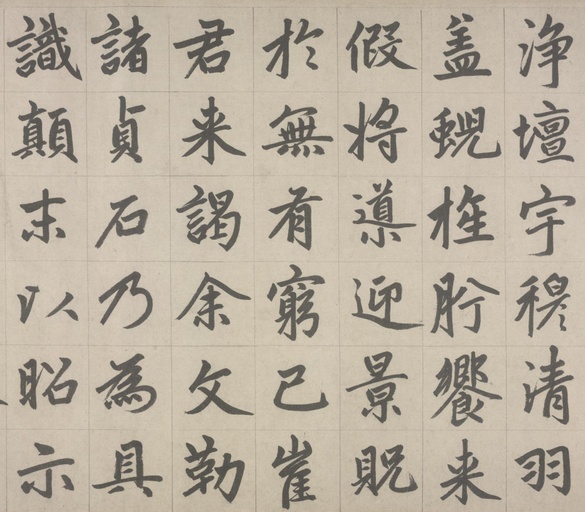 浄壇宇穆清羽
盖蜺旌肸饗来
假将導迎景貺
於無有窮已崔
君来謁余文勒
諸貞石乃為具
識顛末以昭示